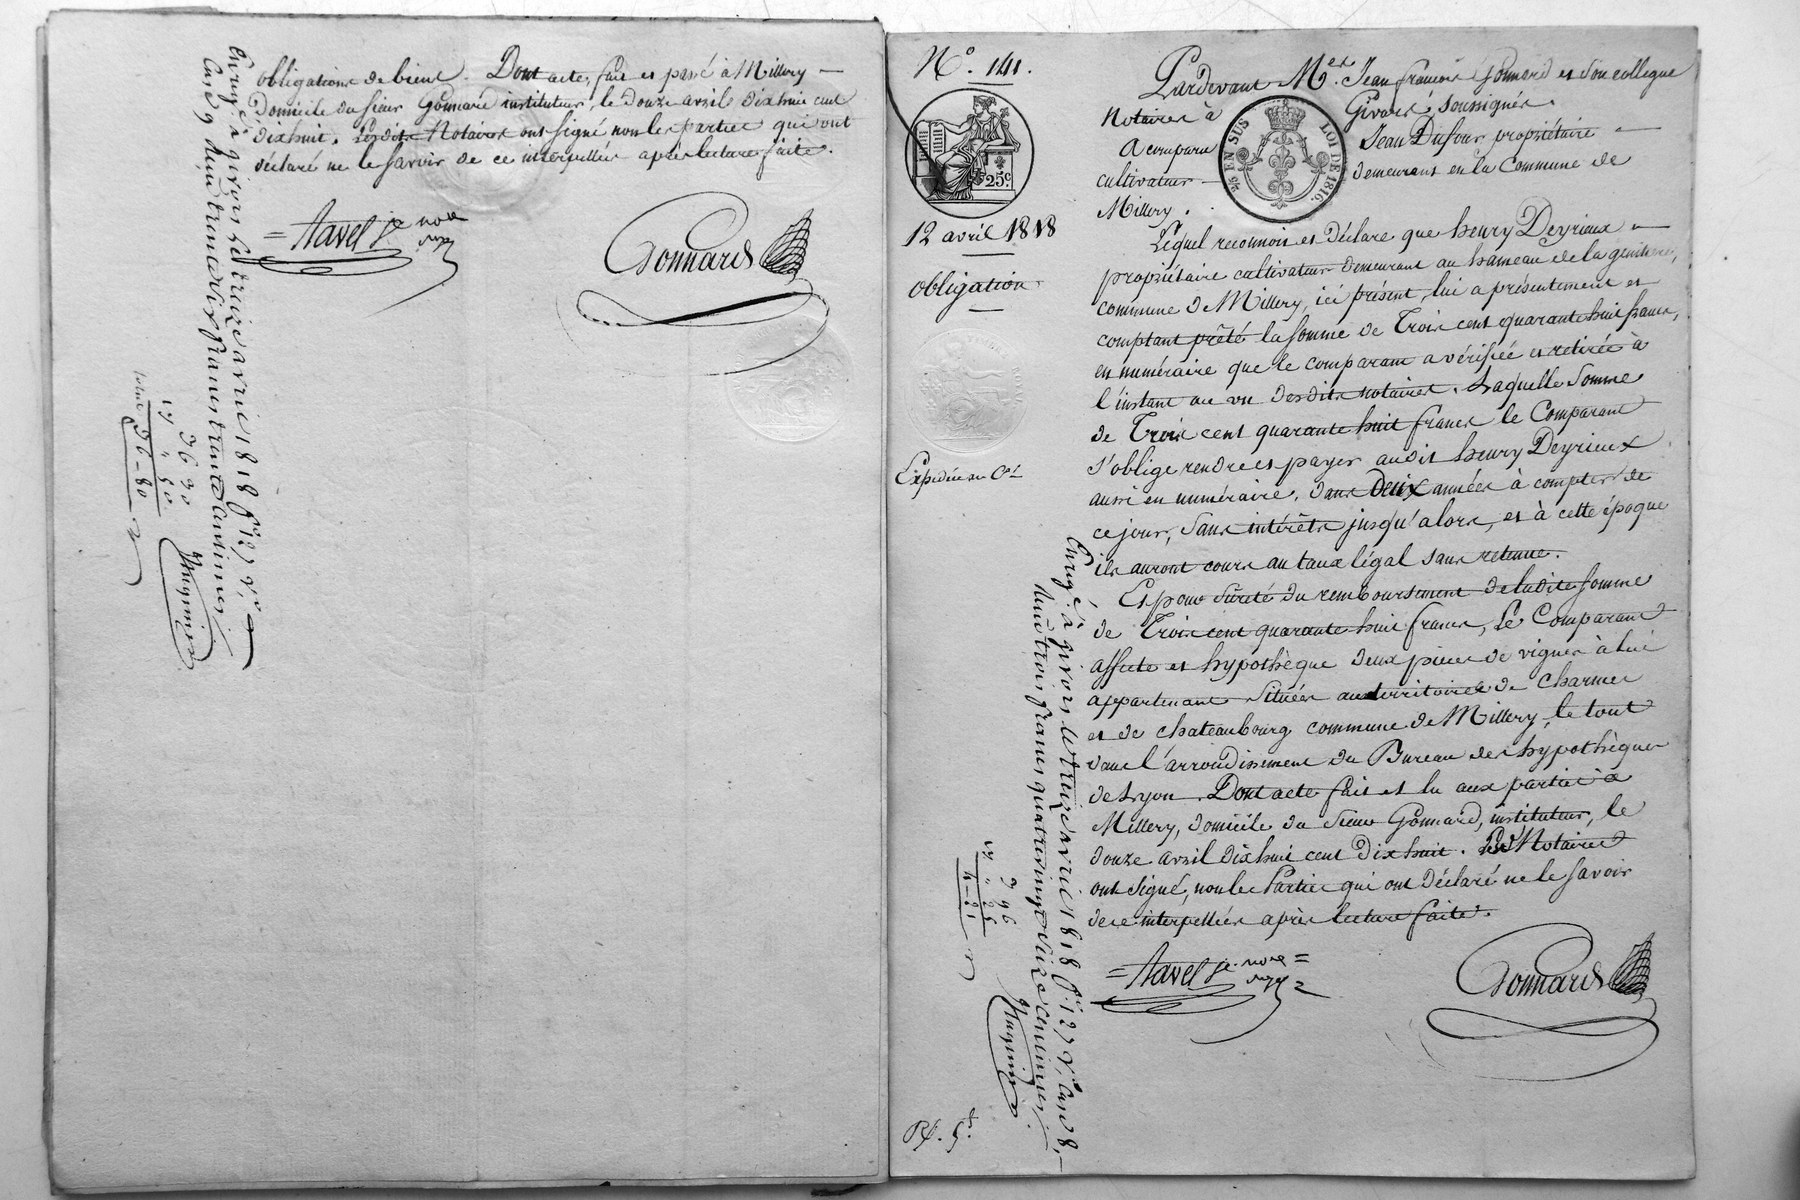 obligations de bient. Dont acte, fait et passé à Millery —
Domicile du sieur Gonnard instituteur, le douze avril dix huit cent
dixhuit. Lesdits Notaires ont signé non les parties qui ont
déclaré ne le savoir de ce interpellées après lecture faite.
= Havel Je nore
Gonnard
Enregé à givors le treize avril 1818 f° 127 v°
Case 9 trente six francs trente centimes
36 30
total 36-80
N° 141.
25 c.
12 avril 1818
obligation
Expédiée au Cr
¼ EN SUS LOI DE 1816.
Pardevant Mes. Jean françois Gonnard et son collegue
Notaires à Givors soussignés.
A comparu Jean Dufour propriétaire —
cultivateur — demeurant en la Commune de
Millery.
Lequel reconnoit et déclare que henry Deyrieux —
propriétaire cultivateur demeurant au hameau de la gentiere,
commune de Millery, ici présent, lui a présentement et
comptant prêté la somme de Trois cent quarante huit francs,
en numéraire que le comparant a vérifiée et retirée à
l'instant au vu desdits notaires. Laquelle Somme
de Trois cent quarante huit francs le Comparant
s'oblige rendre et payer audit henry Deyrieux
aussi en numéraire, dans Deux années à compter de
ce jour, sans intérêts jusqu'alors, et à cette époque
ils auront cours au taux légal sans retenue.
Et pour sûreté du remboursement de ladite somme
de Trois cent quarante huit francs, le Comparant
affecte et hypothèque deux pieces de vignes à lui
appartenant situées au territoires de Charmes
et de chateaubourg commune de Millery, le tout
dans l'arrondissement du Bureau des hypothèques
de Lyon. Dont acte fait et lu aux parties à
Millery, domicile du sieur Gonnard, instituteur, le
douze avril dix huit cent dix huit. Lesd Notaires
ont signé, non les Parties qui ont déclaré ne le savoir
de ce interpellées après lecture faite.
= Havel Je nore =
Gonnard
Enregé à givors le treize avril 1818 f° 127 v°, Case 8,
trois francs quatre vingt seize centimes
3 96
4-81